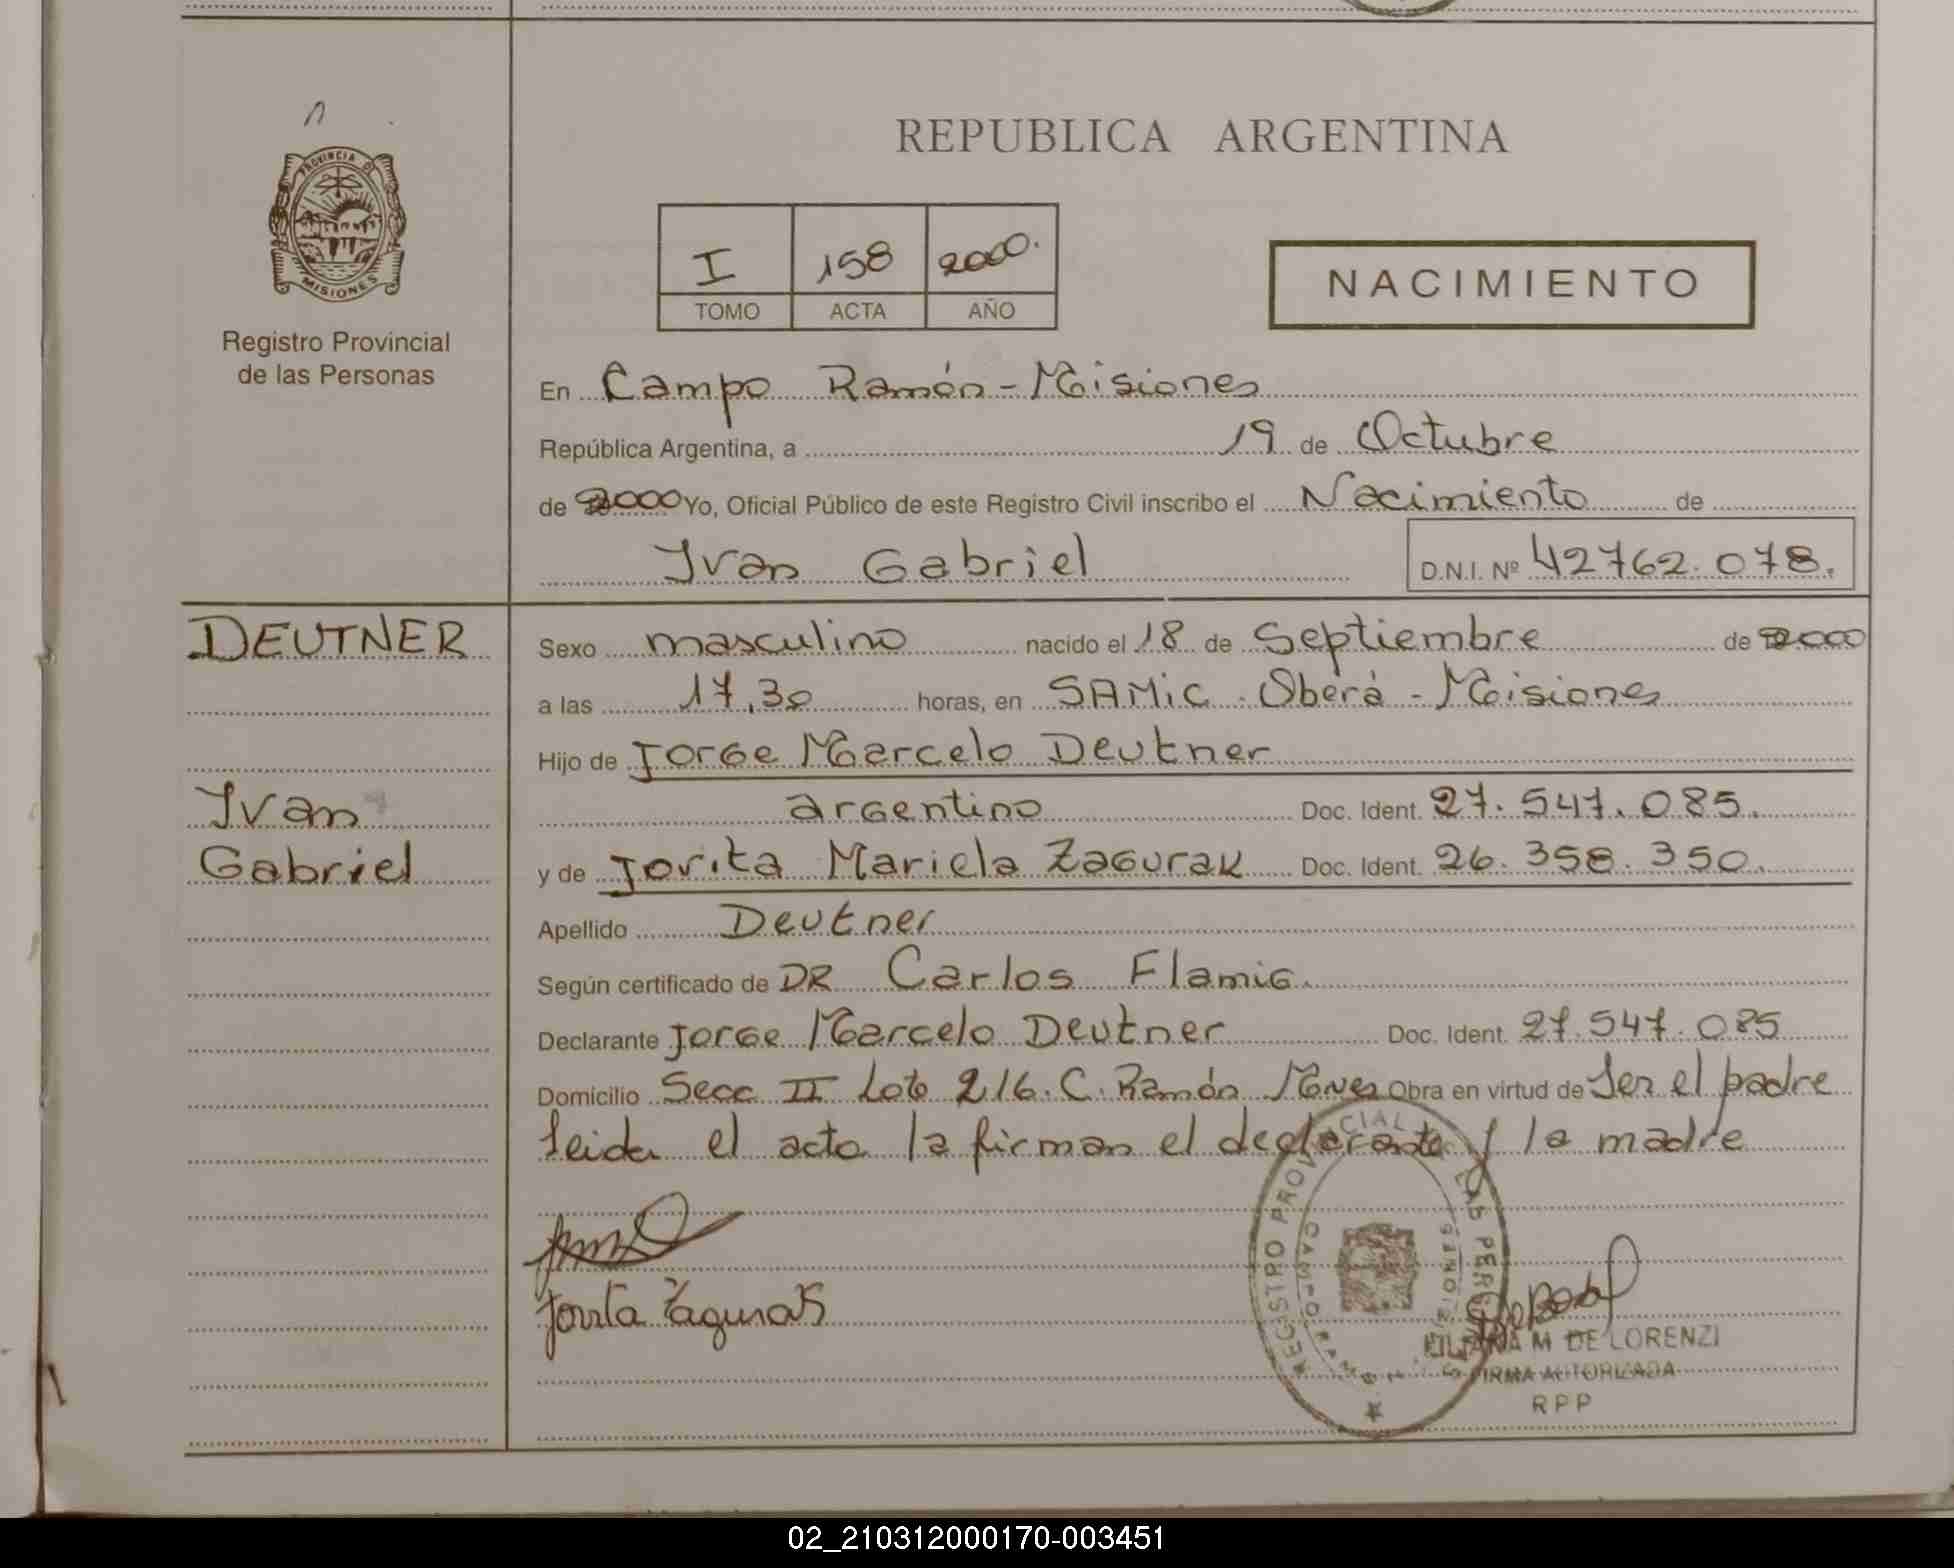 PROVINCIA D
MISIONES
Registro Provincial
de las Personas
REPUBLICA ARGENTINA
I 158 2000.
TOMO ACTA AÑO
NACIMIENTO
En Campo Ramón - Misiones
República Argentina, a 19 de Octubre
de 2000 Yo, Oficial Público de este Registro Civil inscribo el Nacimiento de
Ivan Gabriel D.N.I. Nº 42762.078.
DEUTNER
Ivan
Gabriel
Sexo masculino nacido el 18 de Septiembre de 2000
a las 17,30 horas, en SAMIC - Oberá - Misiones
Hijo de Jorge Marcelo Deutner
argentino Doc. Ident. 27.547.085.
y de Jovita Mariela Zagurak Doc. Ident. 26.358.350.
Apellido Deutner
Según certificado de DR Carlos Flamig.
Declarante Jorge Marcelo Deutner Doc. Ident. 27.547.085
Domicilio Secc II Lote 216. C. Ramón Mnes Obra en virtud de Ser el padre
leida el acta la firman el declarante y la madre
Jovita Zagurak
REGISTRO PROVINCIAL DE LAS PERSONAS
CAMPO RAMON MISIONES
LILIANA M DE LORENZI
FIRMA AUTORIZADA
RPP
02_210312000170-003451